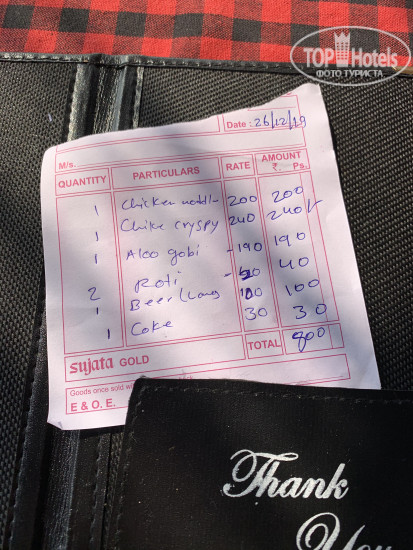 TOP Hotels
ФОТО ТУРИСТА
Date : 26/12/19
M/s.
QUANTITY PARTICULARS RATE AMOUNT
₹. Ps.
1 Chicken noddl 200 200
1 Chike cryspy 240 240/
1 Aloo gobi - 190 190
2 Roti - 40
1 Beer 100 100
1 Coke 30 30
TOTAL 800
sujata GOLD
Goods once sold
E & O. E.
Thank
You